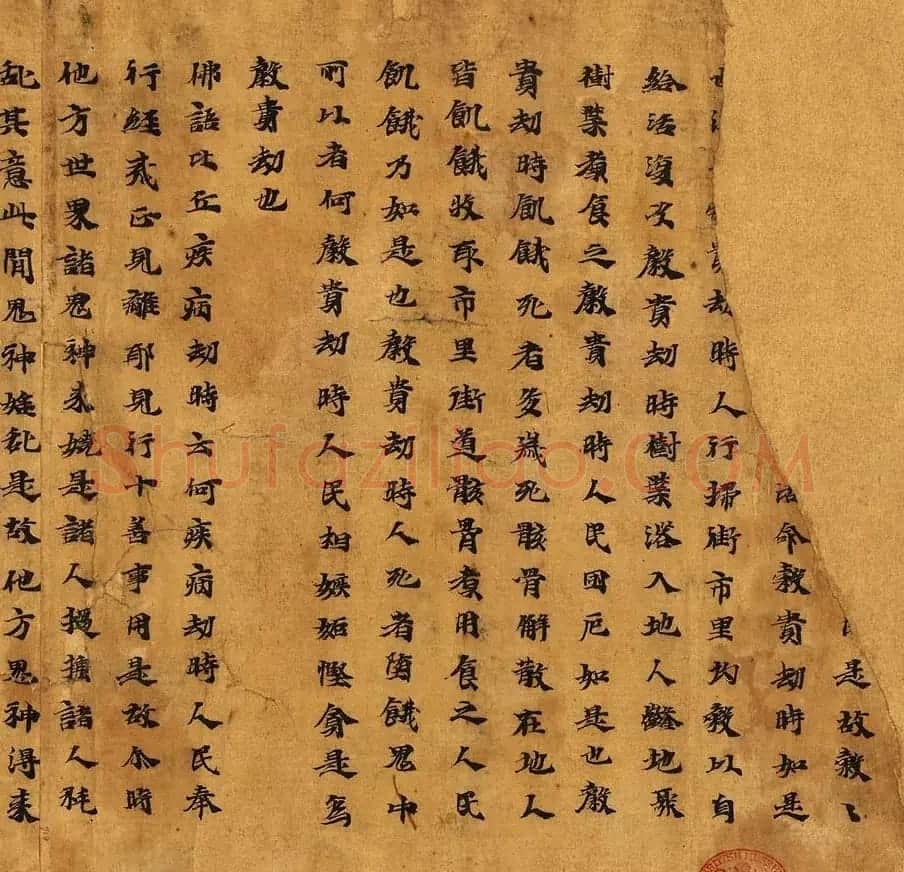 是故穀〻
活命穀貴劫時如是
劫時人行掃街市里均穀以自
給活復次穀貴劫時樹葉落入地人鑿地取
樹葉煮食之穀貴劫時人民困厄如是也穀
貴劫時飢餓死者多歲死骸骨解散在地人
皆飢餓收取市里街道骸骨煮用食之人民
飢餓乃如是也穀貴劫時人死者墮餓鬼中
所以者何穀貴劫時人民相嫉妬慳貪是為
穀貴劫也
佛語比丘疾病劫時云何疾病劫時人民奉
行經戒正見離耶見行十善事用是故尒時
他方世界諸鬼神來嬈是諸人撾捶諸人耗
亂其意此間鬼神婬亂是故他方鬼神得來
Shufaziliao.COM